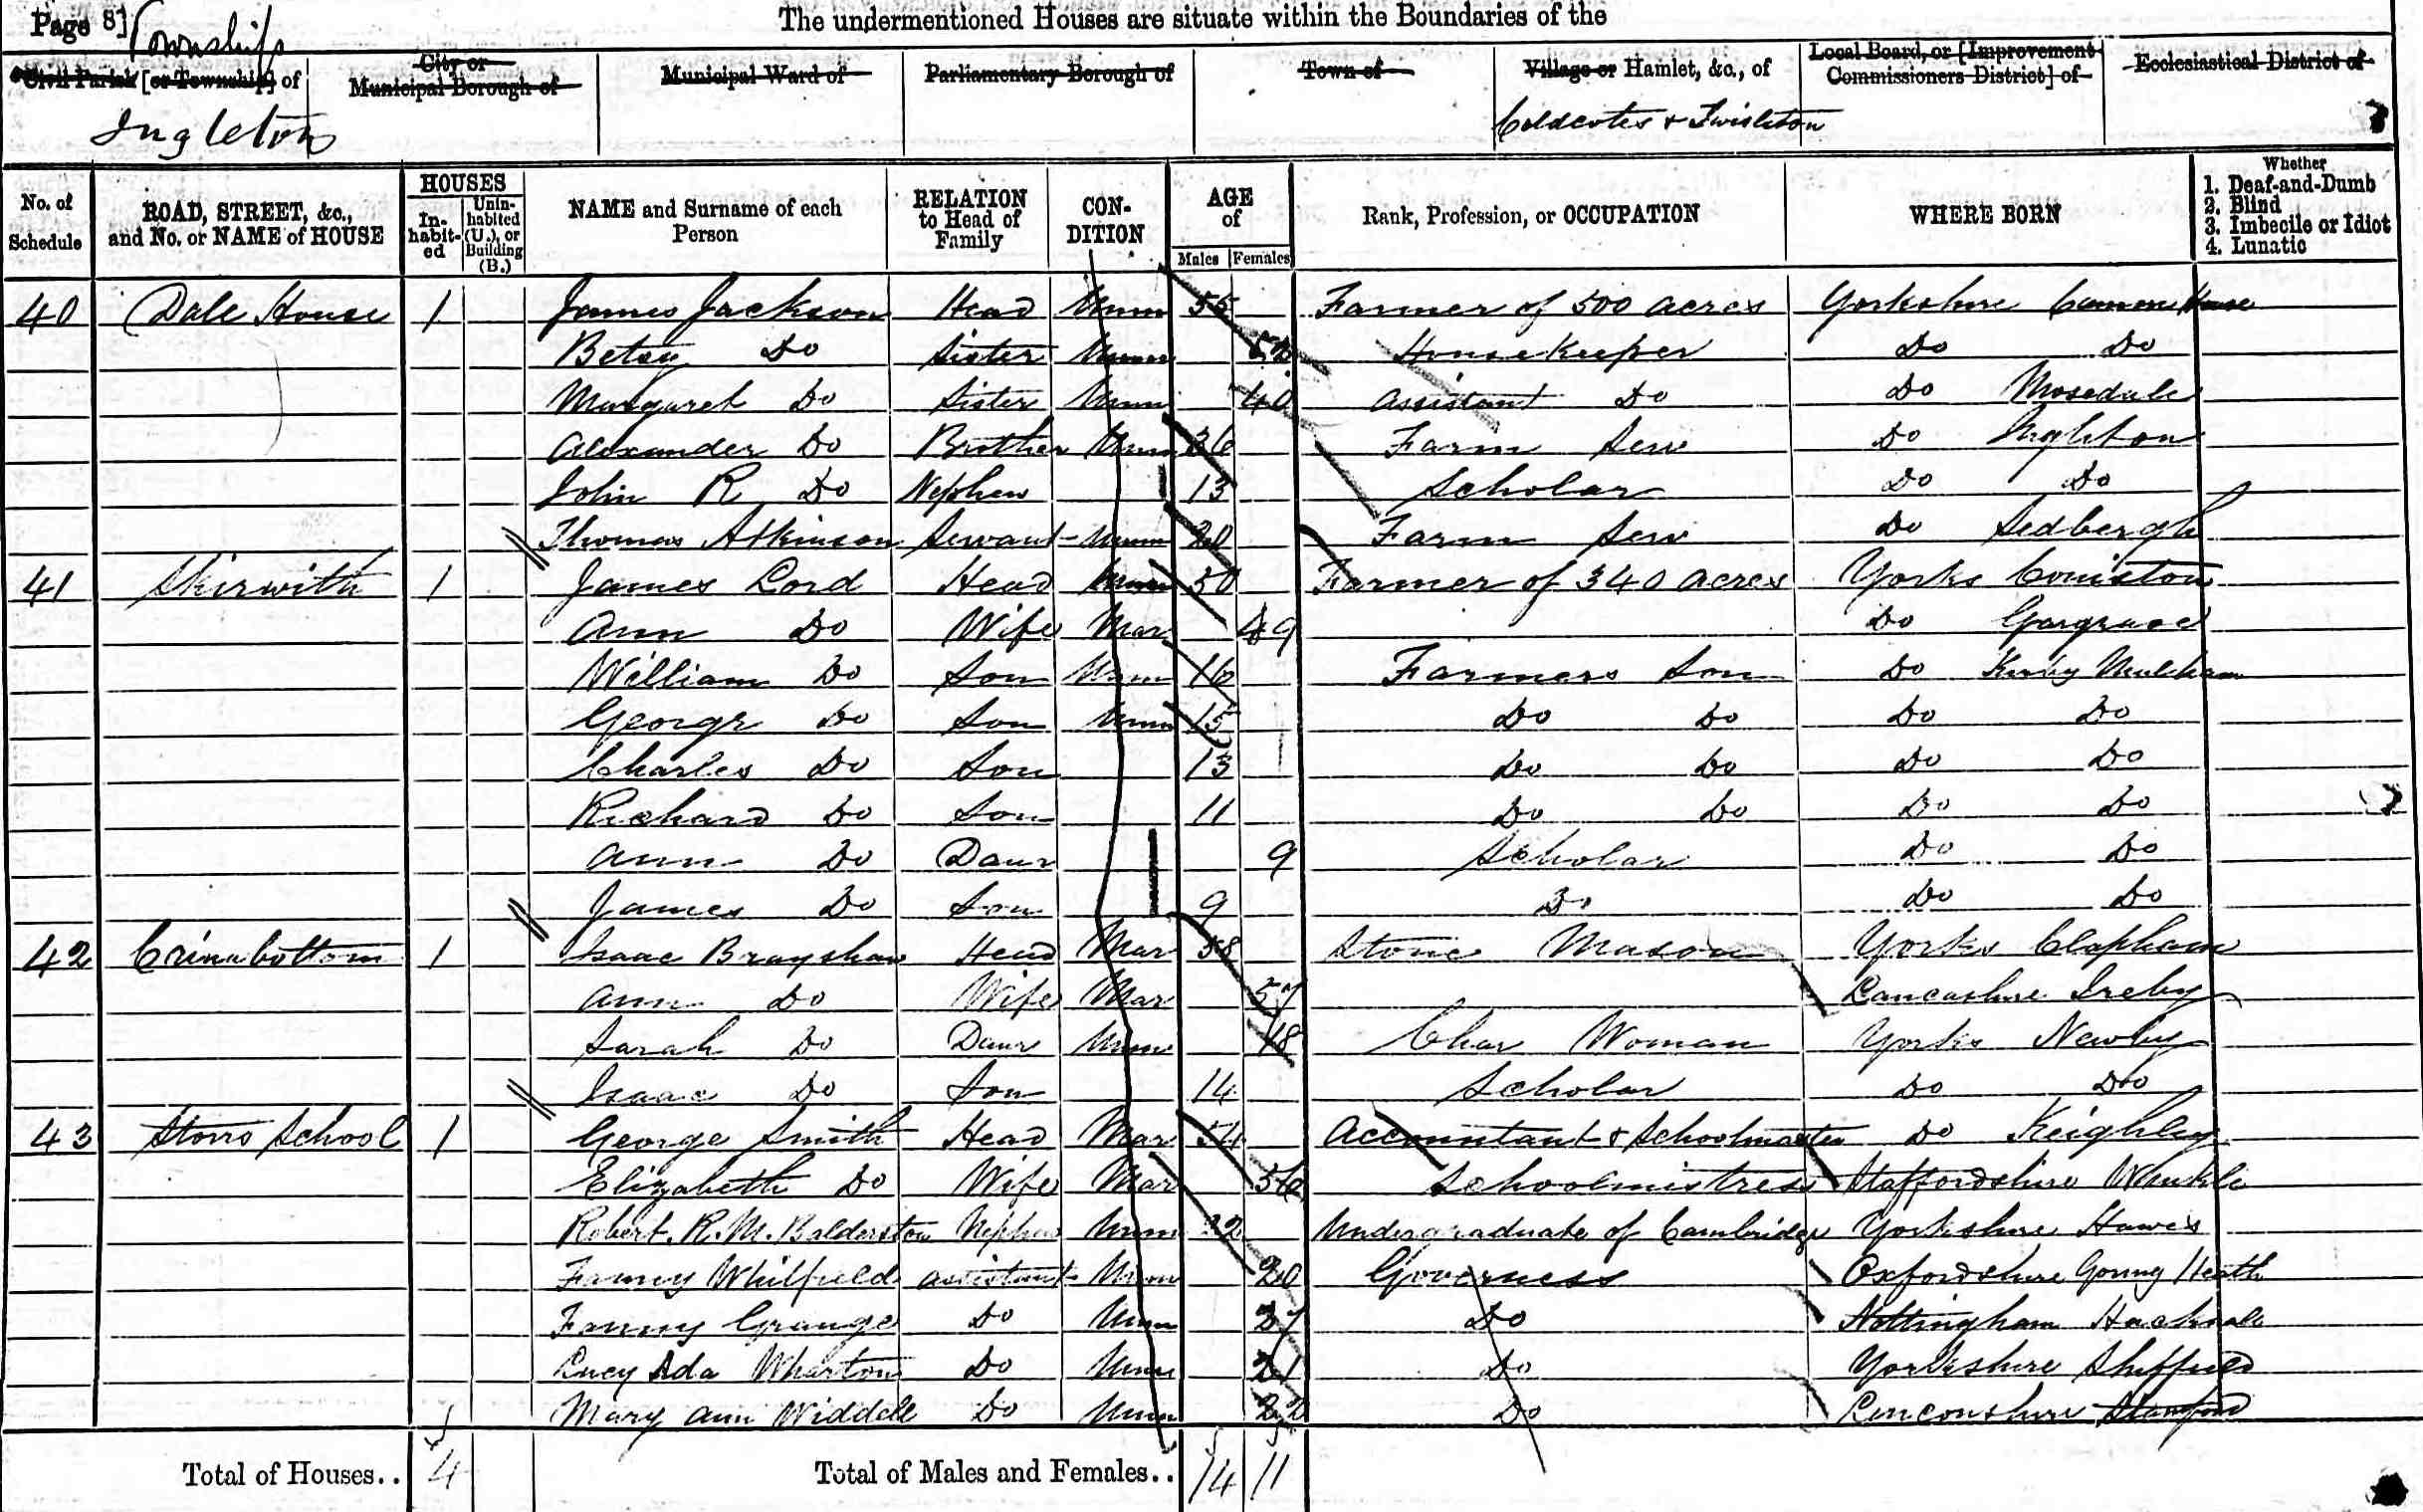 Page 8]
The undermentioned Houses are situate within the Boundaries of the
Township
Civil Parish [or Township] of
City or Municipal Borough of
Municipal Ward of
Parliamentary Borough of
Town of
Village or Hamlet, &c., of
Local Board, or [Improvement Commissioners District] of
Ecclesiastical District of
Ingleton
Coldcotes & Twisleton
No. of Schedule
ROAD, STREET, &c., and No. or NAME of HOUSE
HOUSES
Inhabited
Uninhabited (U.), or Building (B.)
NAME and Surname of each Person
RELATION to Head of Family
CONDITION
AGE of
Males Females
Rank, Profession, or OCCUPATION
WHERE BORN
Whether
1. Deaf-and-Dumb
2. Blind
3. Imbecile or Idiot
4. Lunatic
40 Dale House 1 James Jackson Head Unm 55 Farmer of 500 acres Yorkshire House
Betsy Do Sister Unm Housekeeper Do Do
Margaret Do Sister Unm 40 Assistant Do Do Mosedale
Alexander Do Brother Unm 36 Farm Serv Do Ingleton
John R Do Nephew 13 Scholar Do Do
Thomas Atkinson Servant Unm 20 Farm Serv Do Sedbergh
41 Skirwith 1 James Lord Head 50 Farmer of 340 acres Yorks Coniston
Ann Do Wife Mar 49 Do Gargrave
William Do Son Unm 16 Farmers Son Do Kirby Malham
George Do Son Unm 15 Do Do Do Do
Charles Do Son 13 Do Do Do Do
Richard Do Son 11 Do Do Do Do
Ann Do Daur 9 Scholar Do Do
James Do Son 9 Do Do Do
42 Crinabottom 1 Isaac Brayshaw Head Mar 58 Stone Mason Yorks Clapham
Ann Do Wife Mar 57 Lancashire Ireby
Sarah Do Daur Unm 18 Char Woman Yorks Newby
Isaac Do Son 14 Scholar Do Do
43 Storrs School 1 George Smith Head Mar 54 Accountant & Schoolmaster Do Keighley
Elizabeth Do Wife Mar 56 Schoolmistress Staffordshire
Robert. R. M. Balderston Nephew Unm 22 Undergraduate of Cambridge Yorkshire Hawes
Fanny Whitfield assistant Unm 20 Governess Oxfordshire Goring Heath
Fanny Grange Do Unm 27 Do Nottingham
Lucy Ada Wharton Do Unm 21 Do Yorkshire Sheffield
Mary Ann Widdall Do Unm 22 Do Linconshire Stamford
Total of Houses.. 4
Total of Males and Females.. 14 11